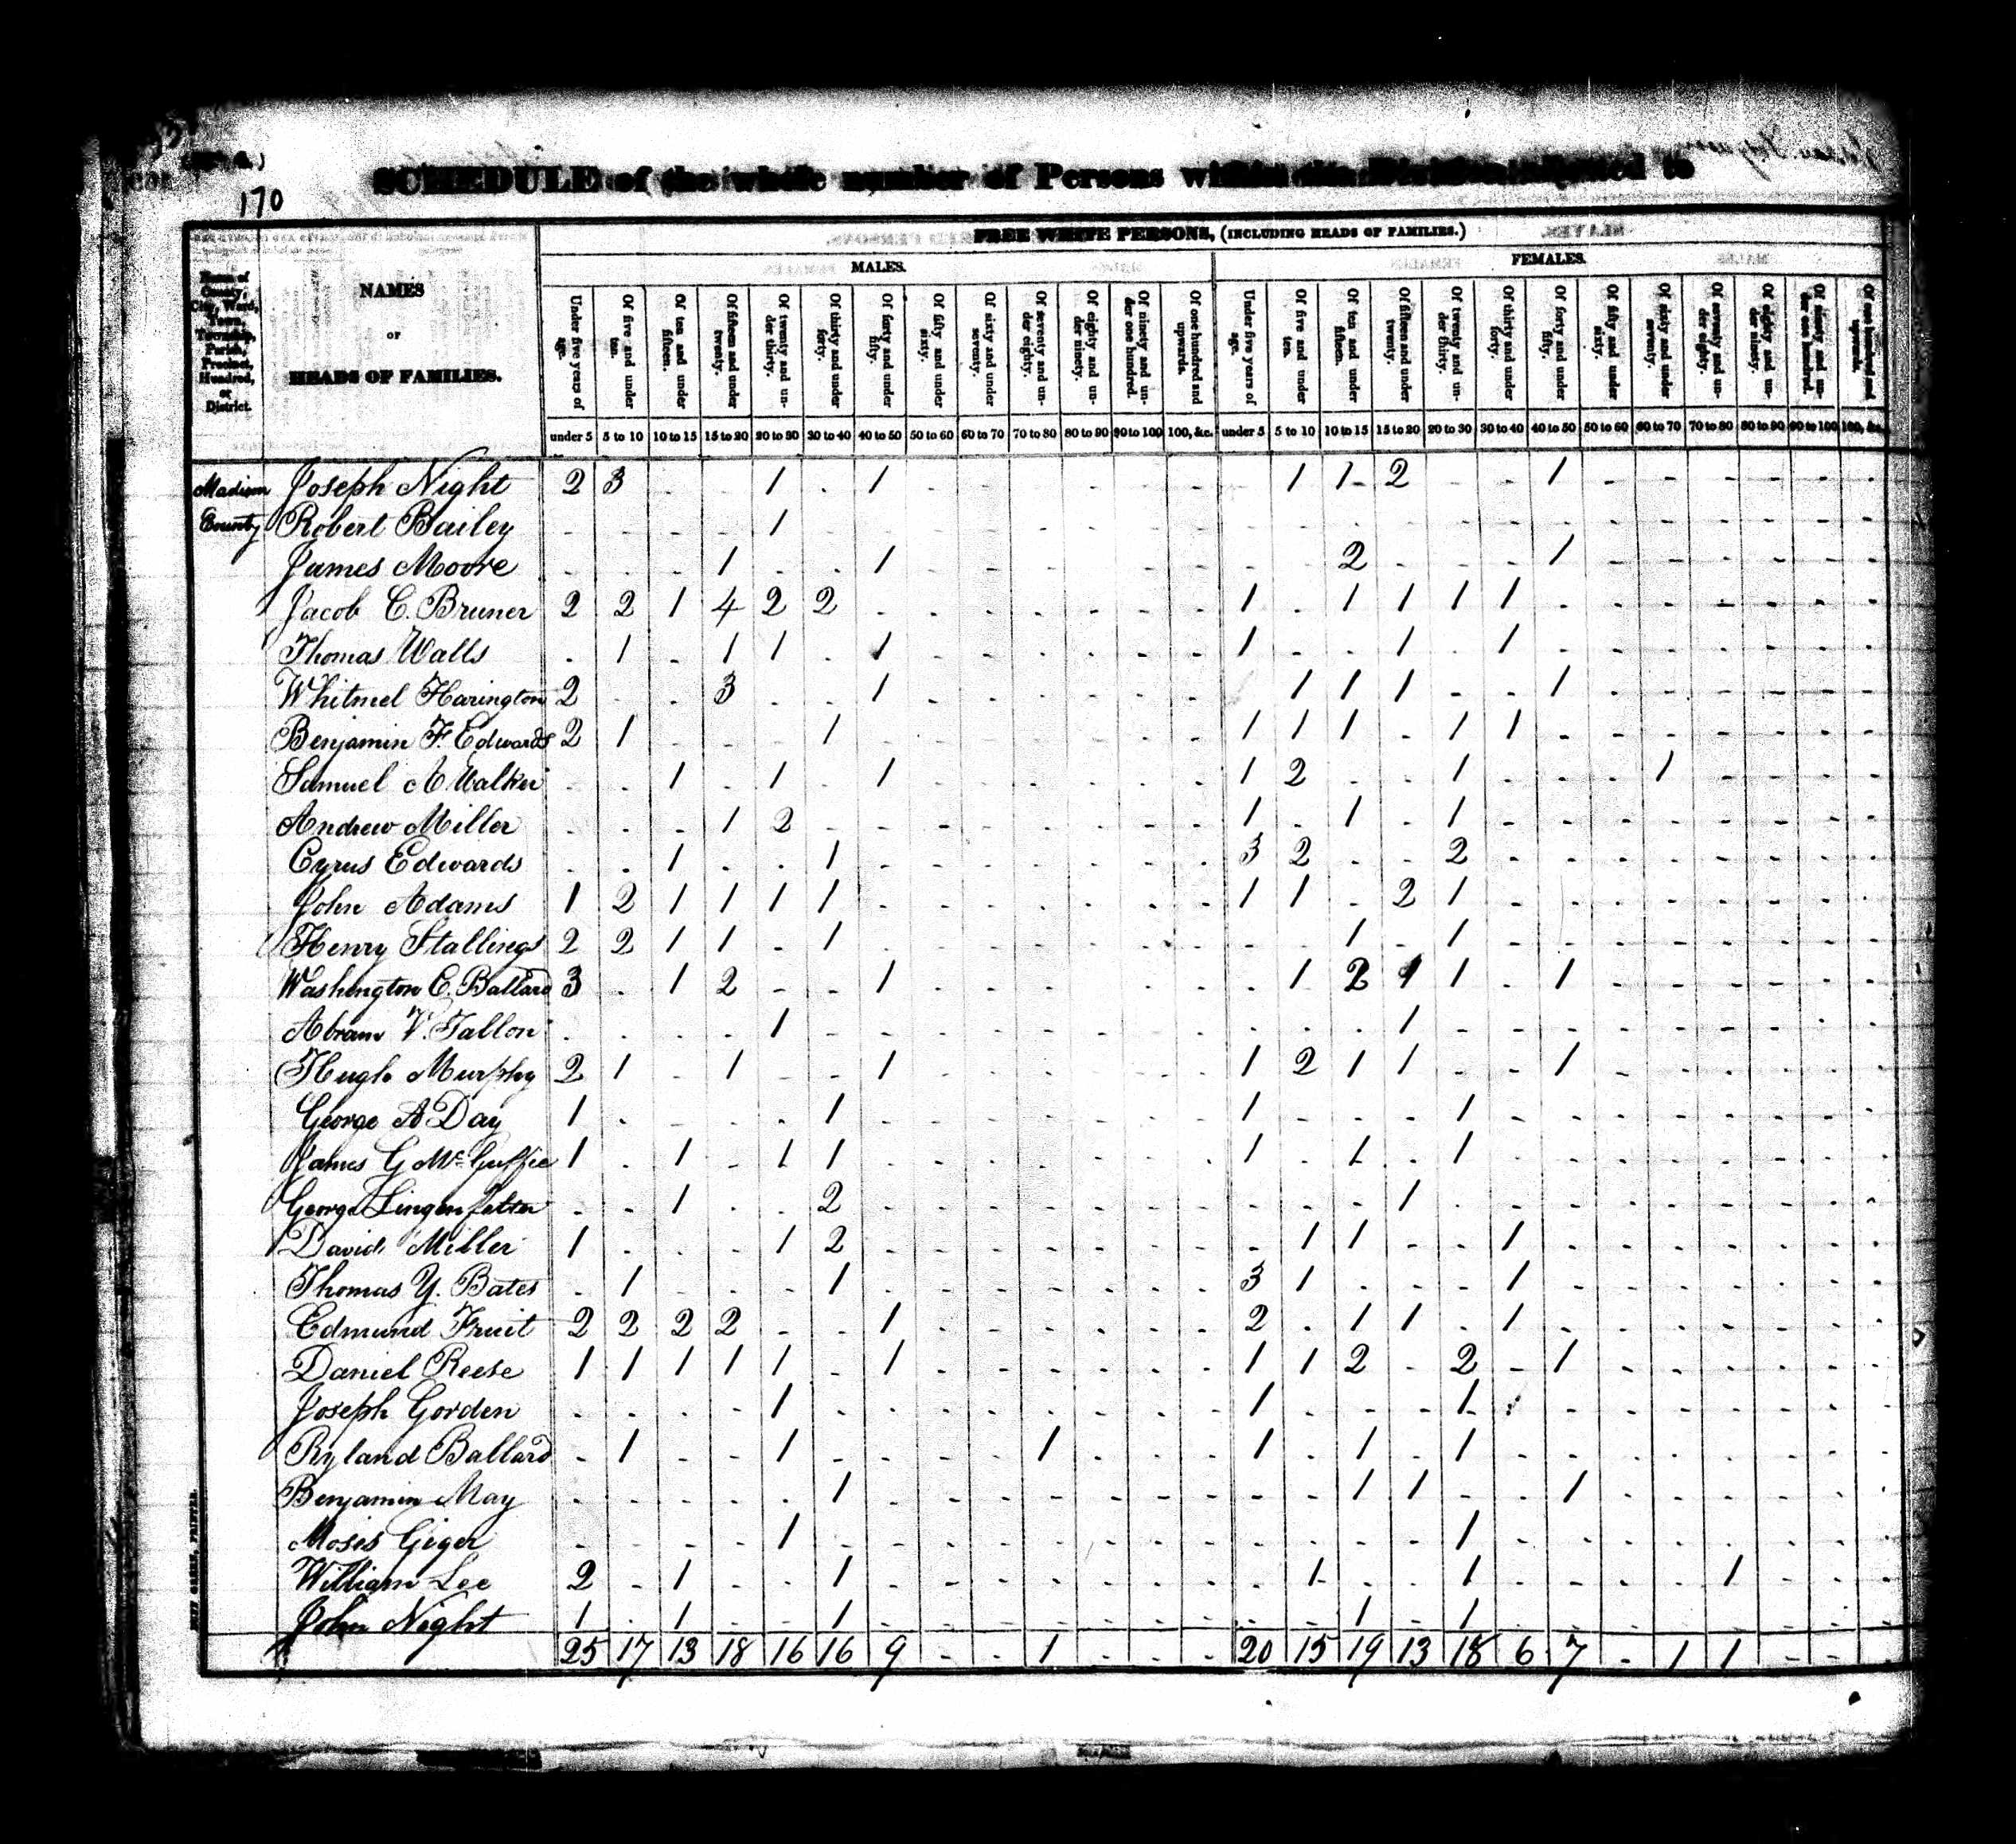 170
SCHEDULE of the whole number of Persons within the Division allotted to
FREE WHITE PERSONS, (INCLUDING HEADS OF FAMILIES.)
MALES. FEMALES.
Name of County, City, Ward, Town, Township, Parish, Precinct, Hundred, or District.
NAMES
OF
HEADS OF FAMILIES.
Under five years of age. Of five and under ten. Of ten and under fifteen. Of fifteen and under twenty. Of twenty and under thirty. Of thirty and under forty. Of forty and under fifty. Of fifty and under sixty. Of sixty and under seventy. Of seventy and under eighty. Of eighty and under ninety. Of ninety and under one hundred. Of one hundred and upwards. Under five years of age. Of five and under ten. Of ten and under fifteen. Of fifteen and under twenty. Of twenty and under thirty. Of thirty and under forty. Of forty and under fifty. Of fifty and under sixty. Of sixty and under seventy. Of seventy and under eighty. Of eighty and under ninety. Of ninety and under one hundred. Of one hundred and upwards.
under 5 5 to 10 10 to 15 15 to 20 20 to 30 30 to 40 40 to 50 50 to 60 60 to 70 70 to 80 80 to 90 90 to 100 100, &c. under 5 5 to 10 10 to 15 15 to 20 20 to 30 30 to 40 40 to 50 50 to 60 60 to 70 70 to 80 80 to 90 90 to 100 100, &c.
Madison Joseph Night 2 3 - - 1 - 1 - - - - - - - 1 1 2 - - 1 - - - - - -
County Robert Bailey - - - - 1 - - - - - - - - - - - - - - - - - - - - -
James Moore - - - 1 - - 1 - - - - - - - - 2 - - - 1 - - - - - -
Jacob C. Bruner 2 2 1 4 2 2 - - - - - - - 1 - 1 1 1 1 - - - - - - -
Thomas Walls - 1 - 1 1 - 1 - - - - - - 1 - - 1 - 1 - - - - - - -
Whitmel Harington 2 - - 3 - - 1 - - - - - - - 1 1 1 - - 1 - - - - - -
Benjamin F. Edwards 2 1 - - - 1 - - - - - - - 1 1 1 - 1 1 - - - - - - -
Samuel A Walker - - 1 - 1 - 1 - - - - - - 1 2 - - 1 - - - 1 - - - -
Andrew Miller - - - 1 2 - - - - - - - - 1 - 1 - 1 - - - - - - - -
Cyrus Edwards - - 1 - - 1 - - - - - - - 3 2 - - 2 - - - - - - - -
John Adams 1 2 1 1 1 1 - - - - - - - 1 1 - 2 1 - - - - - - - -
Henry Stallings 2 2 1 1 - 1 - - - - - - - - - 1 - 1 - - - - - - - -
Washington C. Ballard 3 - 1 2 - - 1 - - - - - - - 1 2 1 1 - 1 - - - - - -
Abram V. Tallon - - - - 1 - - - - - - - - - - - 1 - - - - - - - - -
Hugh Murphy 2 1 - 1 - - 1 - - - - - - 1 2 1 1 - - 1 - - - - - -
George A Day 1 - - - - 1 - - - - - - - 1 - - - 1 - - - - - - - -
James G McGuffie 1 - 1 - 1 1 - - - - - - - 1 - 1 - 1 - - - - - - - -
George Lingenfelter - - 1 - - 2 - - - - - - - - - - 1 - - - - - - - - -
David Miller 1 - - - 1 2 - - - - - - - - 1 1 - - 1 - - - - - - -
Thomas Y. Bates - 1 - - - 1 - - - - - - - 3 1 - - - 1 - - - - - - -
Edmund Fruit 2 2 2 2 - - 1 - - - - - - 2 - 1 1 - 1 - - - - - - -
Daniel Reese 1 1 1 1 1 - 1 - - - - - - 1 1 2 - 2 - 1 - - - - - -
Joseph Gorden - - - - 1 - - - - - - - - 1 - - - 1 - - - - - - - -
Ryland Ballard - 1 - - 1 - - - - 1 - - - 1 - 1 - 1 - - - - - - - -
Benjamin May - - - - - 1 - - - - - - - - - 1 1 - - 1 - - - - - -
Moses Giger - - - - 1 - - - - - - - - - - - - 1 - - - - - - - -
William Lee 2 - 1 - - 1 - - - - - - - - 1 - - 1 - - - - 1 - - -
John Night 1 - 1 - - 1 - - - - - - - - - 1 - 1 - - - - - - - -
25 17 13 18 16 16 9 - - 1 - - - 20 15 19 13 18 6 7 - 1 1 - - -